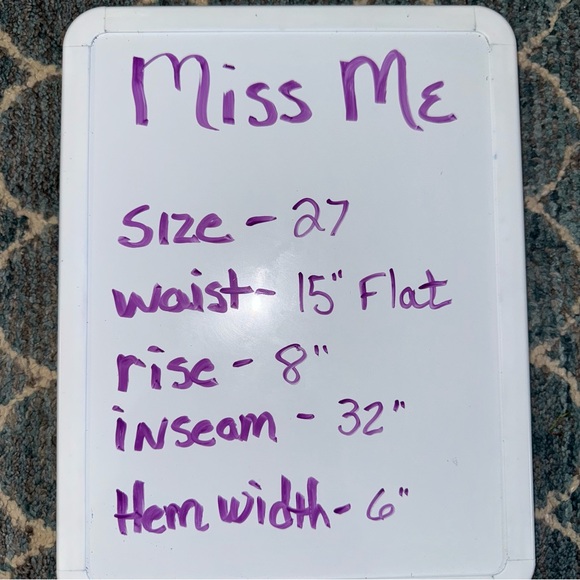 Miss Me
Size - 27
waist- 15" Flat
rise - 8"
inseam - 32"
Hem width- 6"